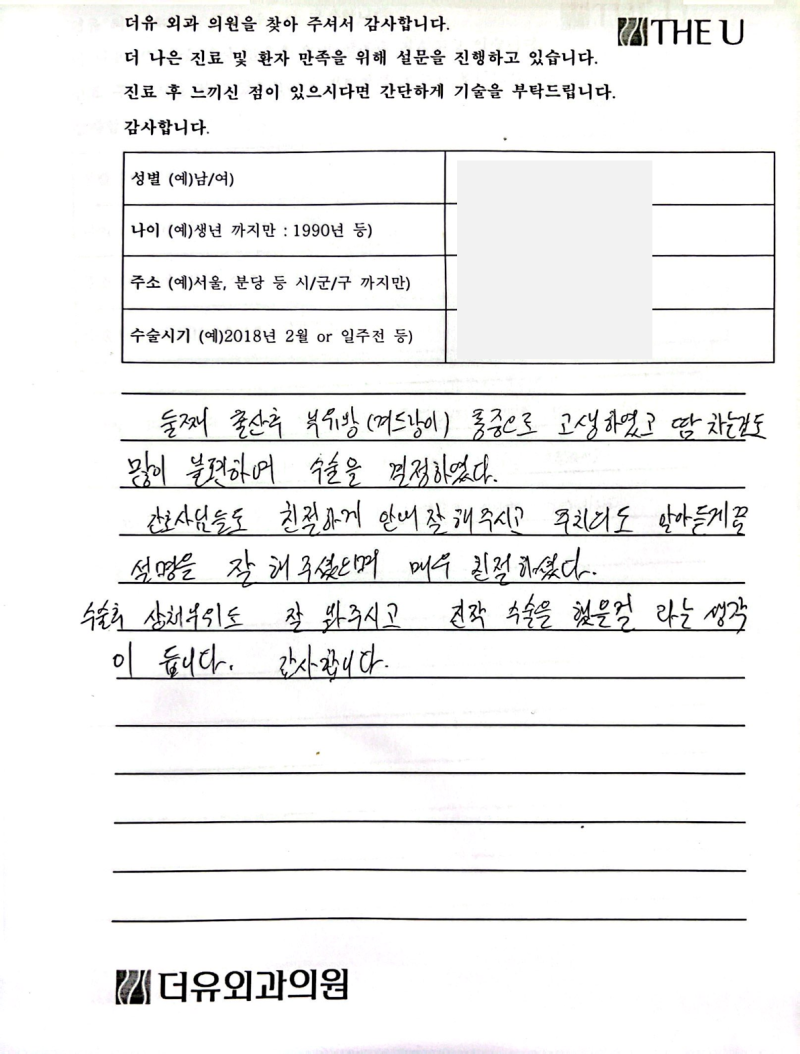 더유 외과 의원을 찾아 주셔서 감사합니다.
THE U
더 나은 진료 및 환자 만족을 위해 설문을 진행하고 있습니다.
진료 후 느끼신 점이 있으시다면 간단하게 기술을 부탁드립니다.
감사합니다.
성별 (예)남/여)
나이 (예)생년 까지만 : 1990년 등)
주소 (예)서울, 분당 등 시/군/구 까지만)
수술시기 (예)2018년 2월 or 일주전 등)
둘째 출산후 부유방(겨드랑이) 통증으로 고생하였고 땀 차는것도
많이 불편하여 수술을 결정하였다.
간호사님들도 친절하게 안내 잘 해주시고 알아듣게끔
설명을 잘 해 주셨으며 매우 친절하셨다.
수술후 상처부위도 잘 봐주시고 진작 수술을 했을걸 라는 생각
이 듭니다. 감사합니다.
더유외과의원